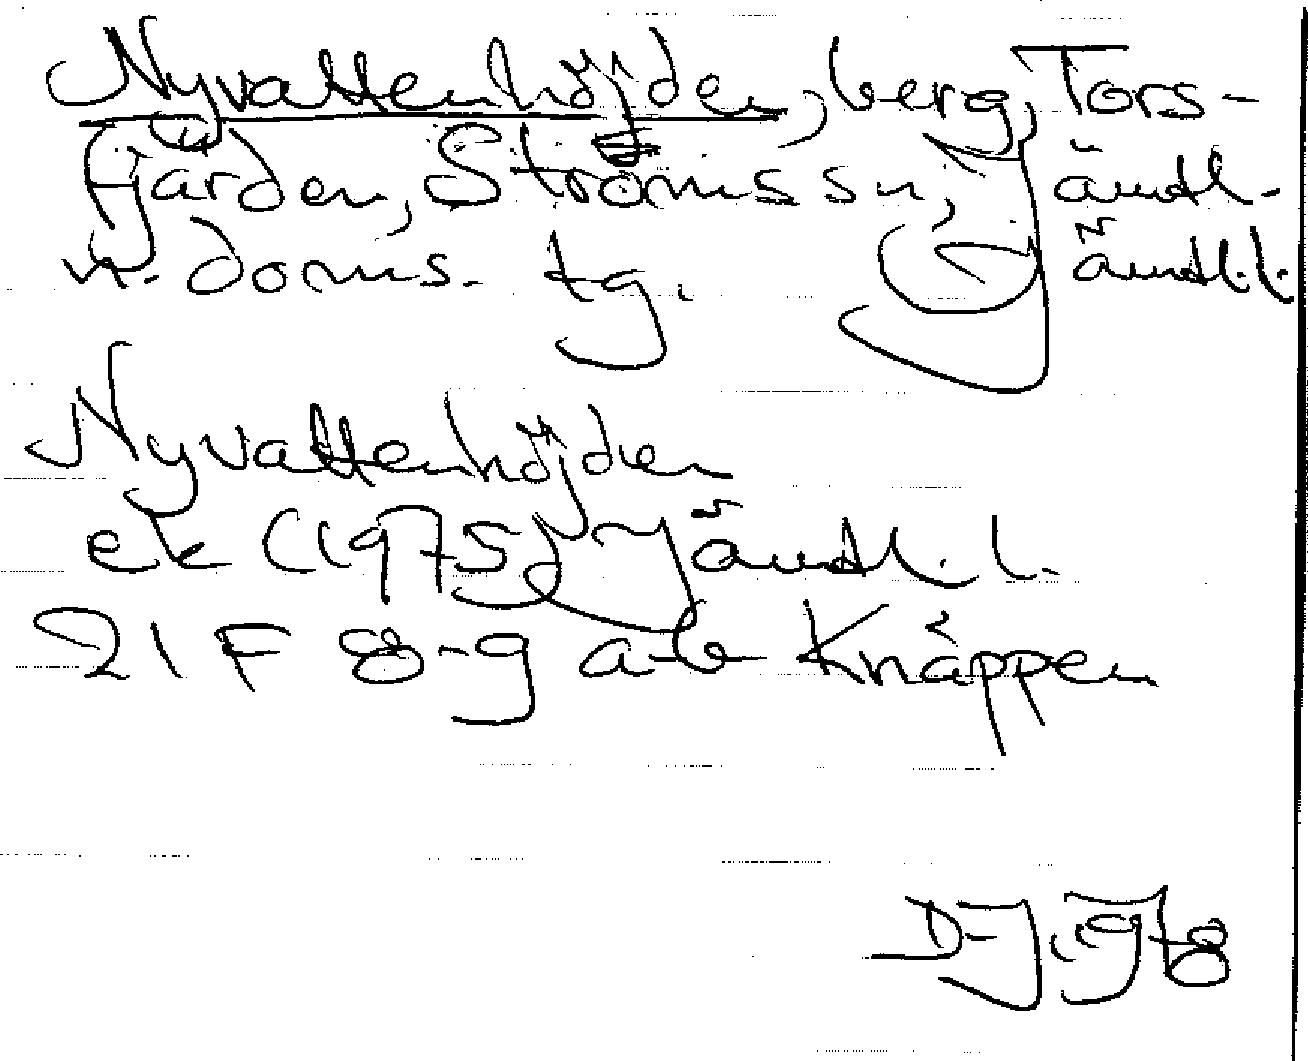 Nyvattenhöjden, berg, Tors-
fjärden, Ströms sn, Jämtl.
n. doms. tg. Jämtl. l.
Nyvattenhöjden
ek (1975) Jämtl. l.
21 F 8-9 a-b Knäppen
DJ. 978